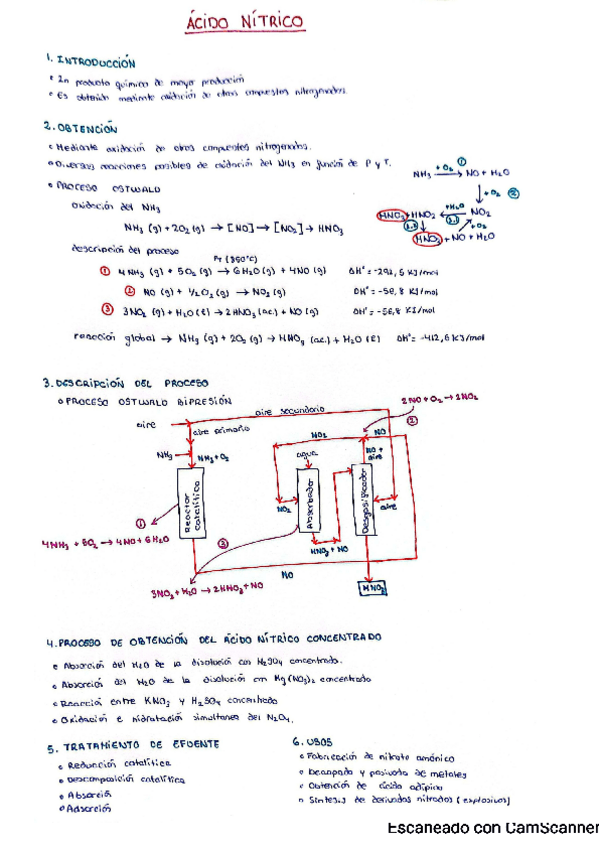 ÁCIDO NÍTRICO
1. INTRODUCCIÓN
• Un producto químico de mayor producción
• Es obtenido mediante oxidación de otros compuestos nitrogenados.
2. OBTENCIÓN
• Mediante oxidación de otros compuestos nitrogenados.
• Diversas reacciones posibles de oxidación del NH3 en función de P y T.
NH3 + O2 → ① NO + H2O
↓ + O2 ②
HNO3 + HNO2 ← +H2O NO2
+ O2
HNO3 + NO + H2O
• PROCESO OSTWALD
oxidación del NH3
NH3 (g) + 2O2 (g) → [NO] → [NO2] → HNO3
descripción del proceso
PT (850°C)
① 4 NH3 (g) + 5O2 (g) → 6 H2O (g) + 4NO (g) ΔH° = -292,5 KJ/mol
② NO (g) + 1/2 O2 (g) → NO2 (g) ΔH° = -56,8 KJ/mol
③ 3NO2 (g) + H2O (l) → 2HNO3 (ac.) + NO (g) ΔH° = -56,8 KJ/mol
reacción global → NH3 (g) + 2O2 (g) → HNO3 (ac.) + H2O (l) ΔH° = -412,6 KJ/mol
3. DESCRIPCIÓN DEL PROCESO
• PROCESO OSTWALD BIPRESIÓN
2NO + O2 → 2NO2
②
aire
aire secundario
aire primario
NO2
NO
NH3
NH3 + O2
agua
NO + aire
Reactor catalítico
Absorbedor
Desgasificador
NO2
aire
①
4NH3 + 5O2 → 4NO + 6H2O
③
HNO3 + NO
NO
3NO2 + H2O → 2HNO3 + NO
HNO3
4. PROCESO DE OBTENCIÓN DEL ÁCIDO NÍTRICO CONCENTRADO
• Absorción del H2O de la disolución con H2SO4 concentrado.
• Absorción del H2O de la disolución con Mg(NO3)2 concentrado
• Reacción entre KNO3 y H2SO4 concentrado
• Oxidación e hidratación simultánea del N2O4.
5. TRATAMIENTO DE EFUENTE
• Reducción catalítica
• Descomposición catalítica
• Absorción
• Adsorción
6. USOS
• Fabricación de nitrato amónico
• Decapado y pasivado de metales
• Obtención de ácido adípico
• Síntesis de derivados nitrados (explosivos)
Escaneado con CamScanner